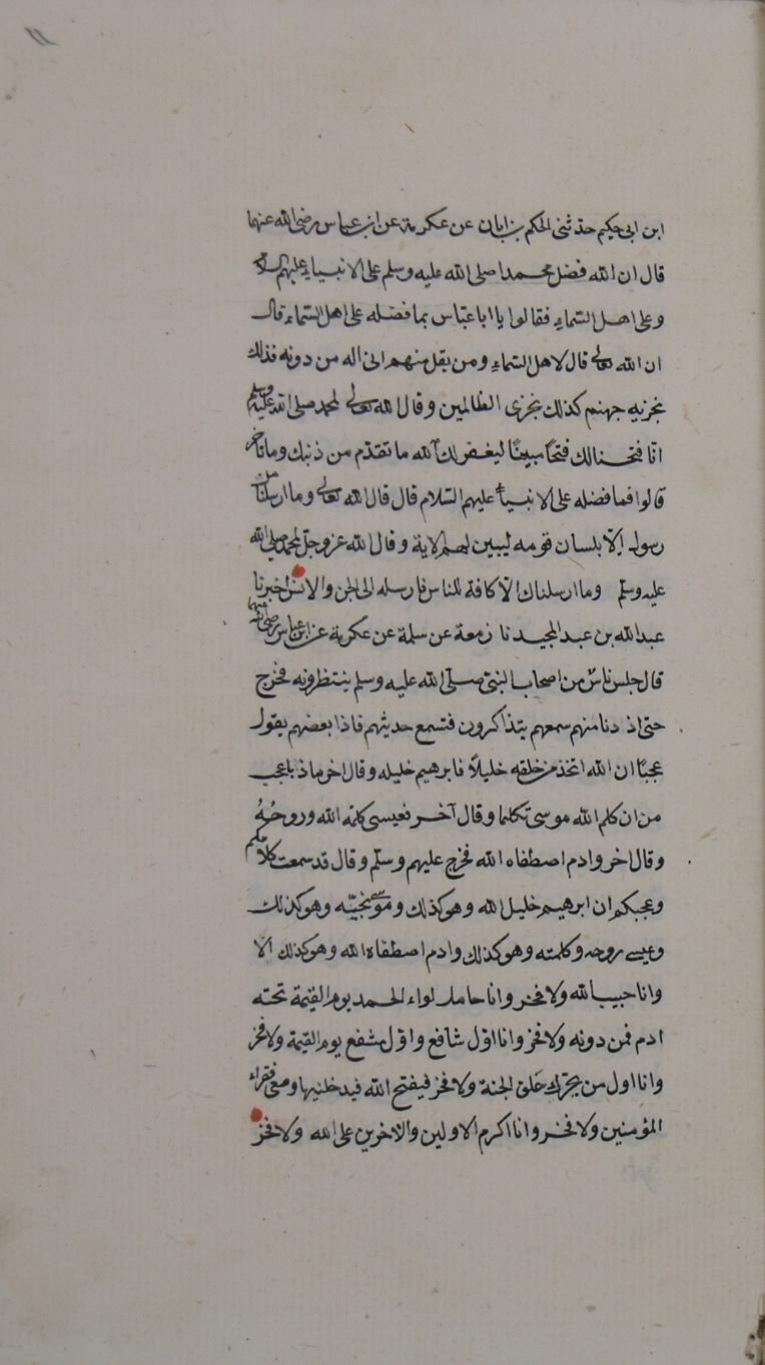 ١١
ابن ابى حكيم حدثنى الحكم بن ابان عن عكرمة عن ابن عباس رضى الله عنهما
قال ان الله فضل محمدا صلى الله عليه وسلم على الانبياء عليهم السلام
وعلى اهل السماء فقالوا يا ابا عباس بما فضله على اهل السماء قال
ان الله تعالى قال لاهل السماء ومن يقل منهم انى اله من دونه فذلك
نجزيه جهنم كذلك نجزى الظالمين وقال الله تعالى لمحمد صلى الله عليه وسلم
انا فتحنا لك فتحًا مبينًا ليغفر لك الله ما تقدّم من ذنبك وما تأخر
قالوا فما فضله على الانبياء عليهم السّلام قال قال الله تعالى وما ارسلنا من
رسول اِلّا بلسان قومه ليبين لهم الاية وقال الله عز وجلّ لمحمد صلى الله
عليه وسلم وما ارسلناك الّا كافة للناس فارسله الى الجن والانس اخبرنا
عبد الله بن عبد المجيد نا زمعة عن سلمة عن عكرمة عن ابن عباس رضى الله عنهما
قال جلس ناسٌ من اصحاب النبى صلّى الله عليه وسلم ينتظرونه فخرج
حتى اذ دنا منهم سمعهم يتذاكرون فتسمع حديثهم فاذا بعضهم يقول
عجبًا ان الله اتخذ من خلقه خليلًا فابرهيم خليله وقال اخر ماذا باعجب
من ان كلم الله موسى تكليما وقال آخر فعيسى كلمة الله وروحُهُ
وقال اخر وادم اصطفاه الله فخرج عليهم وسلّم وقال قد سمعت كلامكم
وعجبكم ان ابرهيم خليل الله وهو كذلك وموسى نجيّه وهو كذلك
وعيسى روحه وكلمته وهو كذلك وادم اصطفاه الله وهو كذلك الا
وانا حبيب الله ولا فخر وانا حامل لواء الحمد يوم القيمة تحته
ادم فمن دونه ولا فخر وانا اوّل شافع واوّل مشفع يوم القيمة ولا فخر
وانا اول من يحرّك حَلَق الجنة ولا فخر فيفتح الله فيدخلنيها ومعى فقراء
المؤمنين ولا فخر وانا اكرم الاولين والاخرين على الله ولا فخر